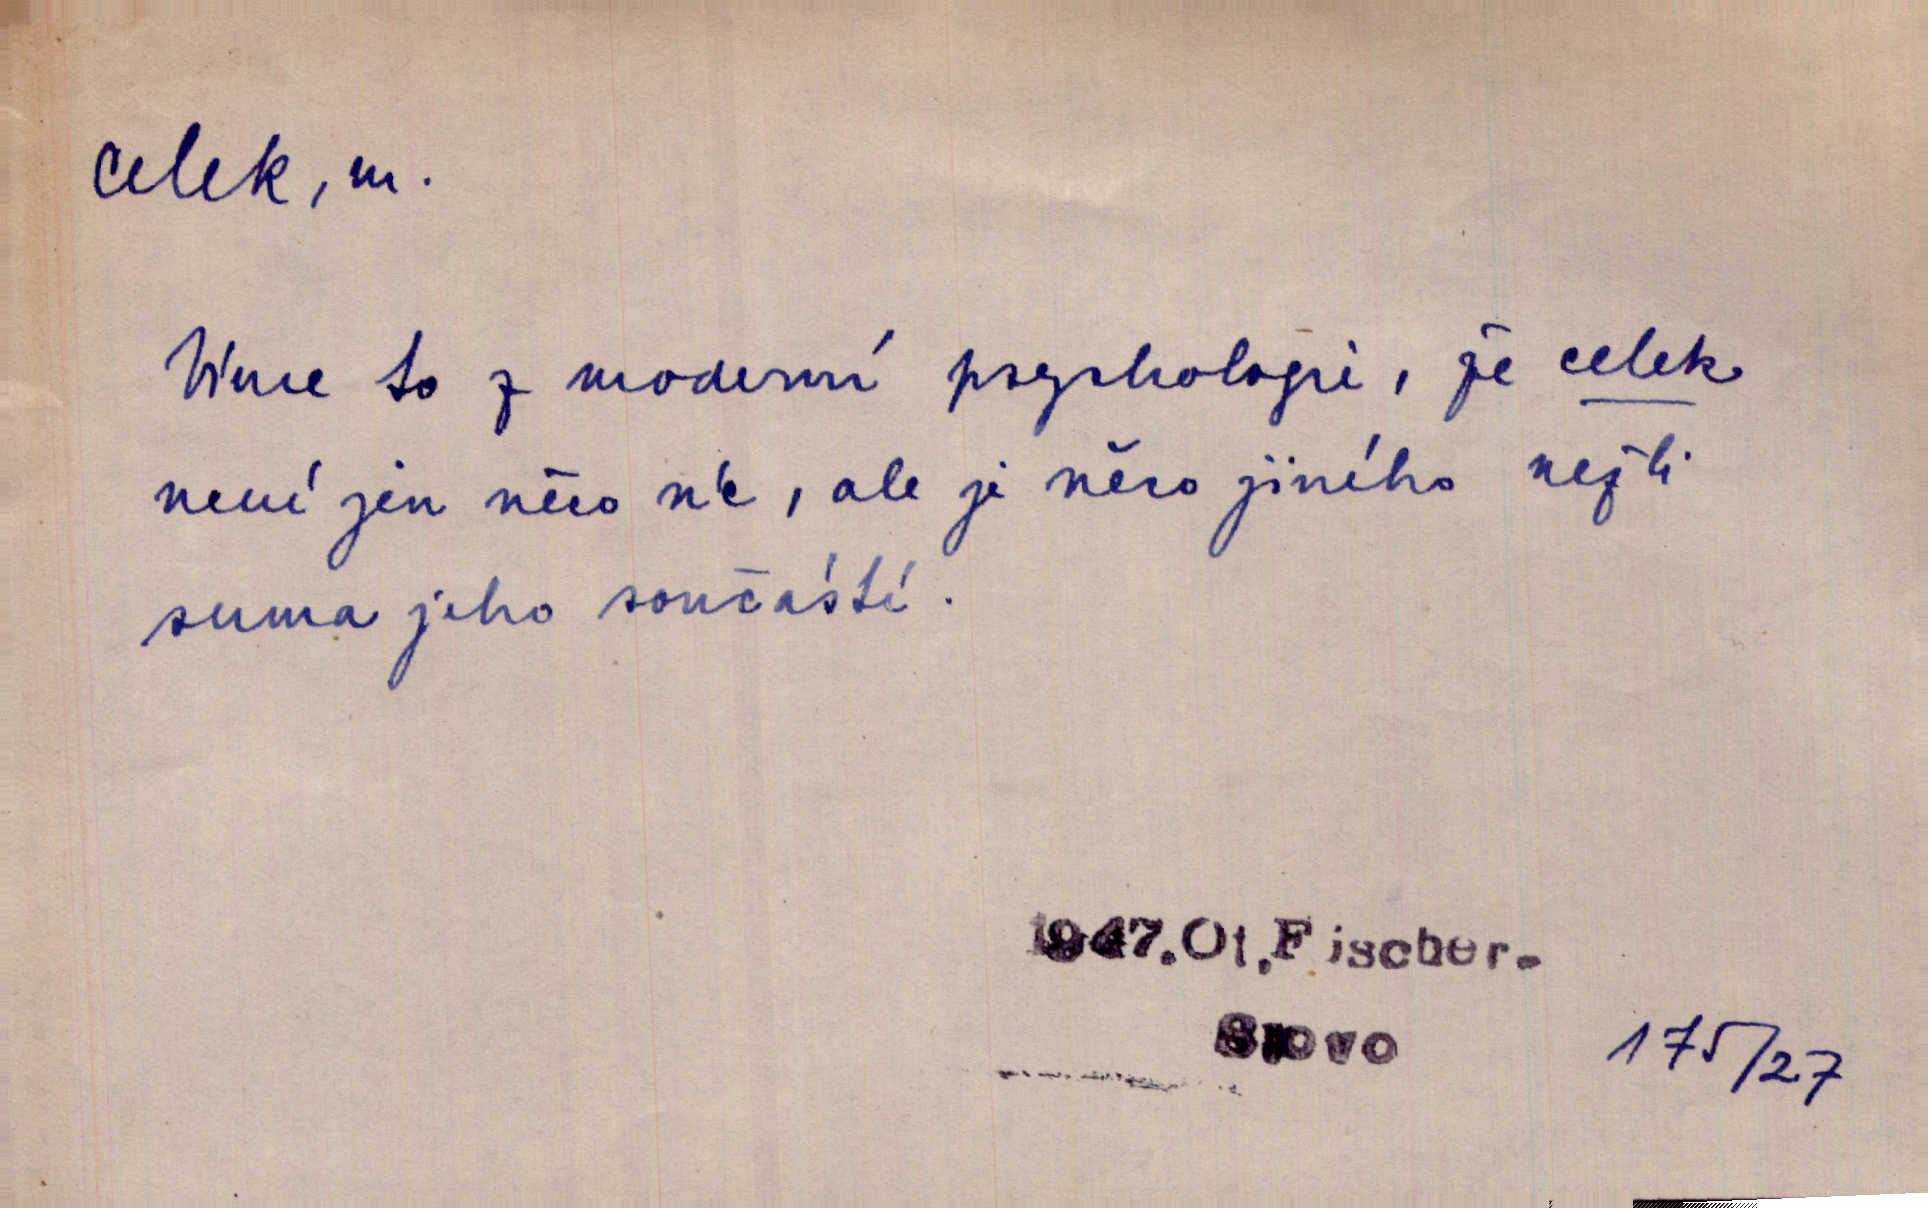 celek, m.
Víme to z moderní psychologie, že celek
není jen něco víc, ale je něco jiného nežli
suma jeho součástí.
1947. Ot. Fischer-
Slovo
175/27